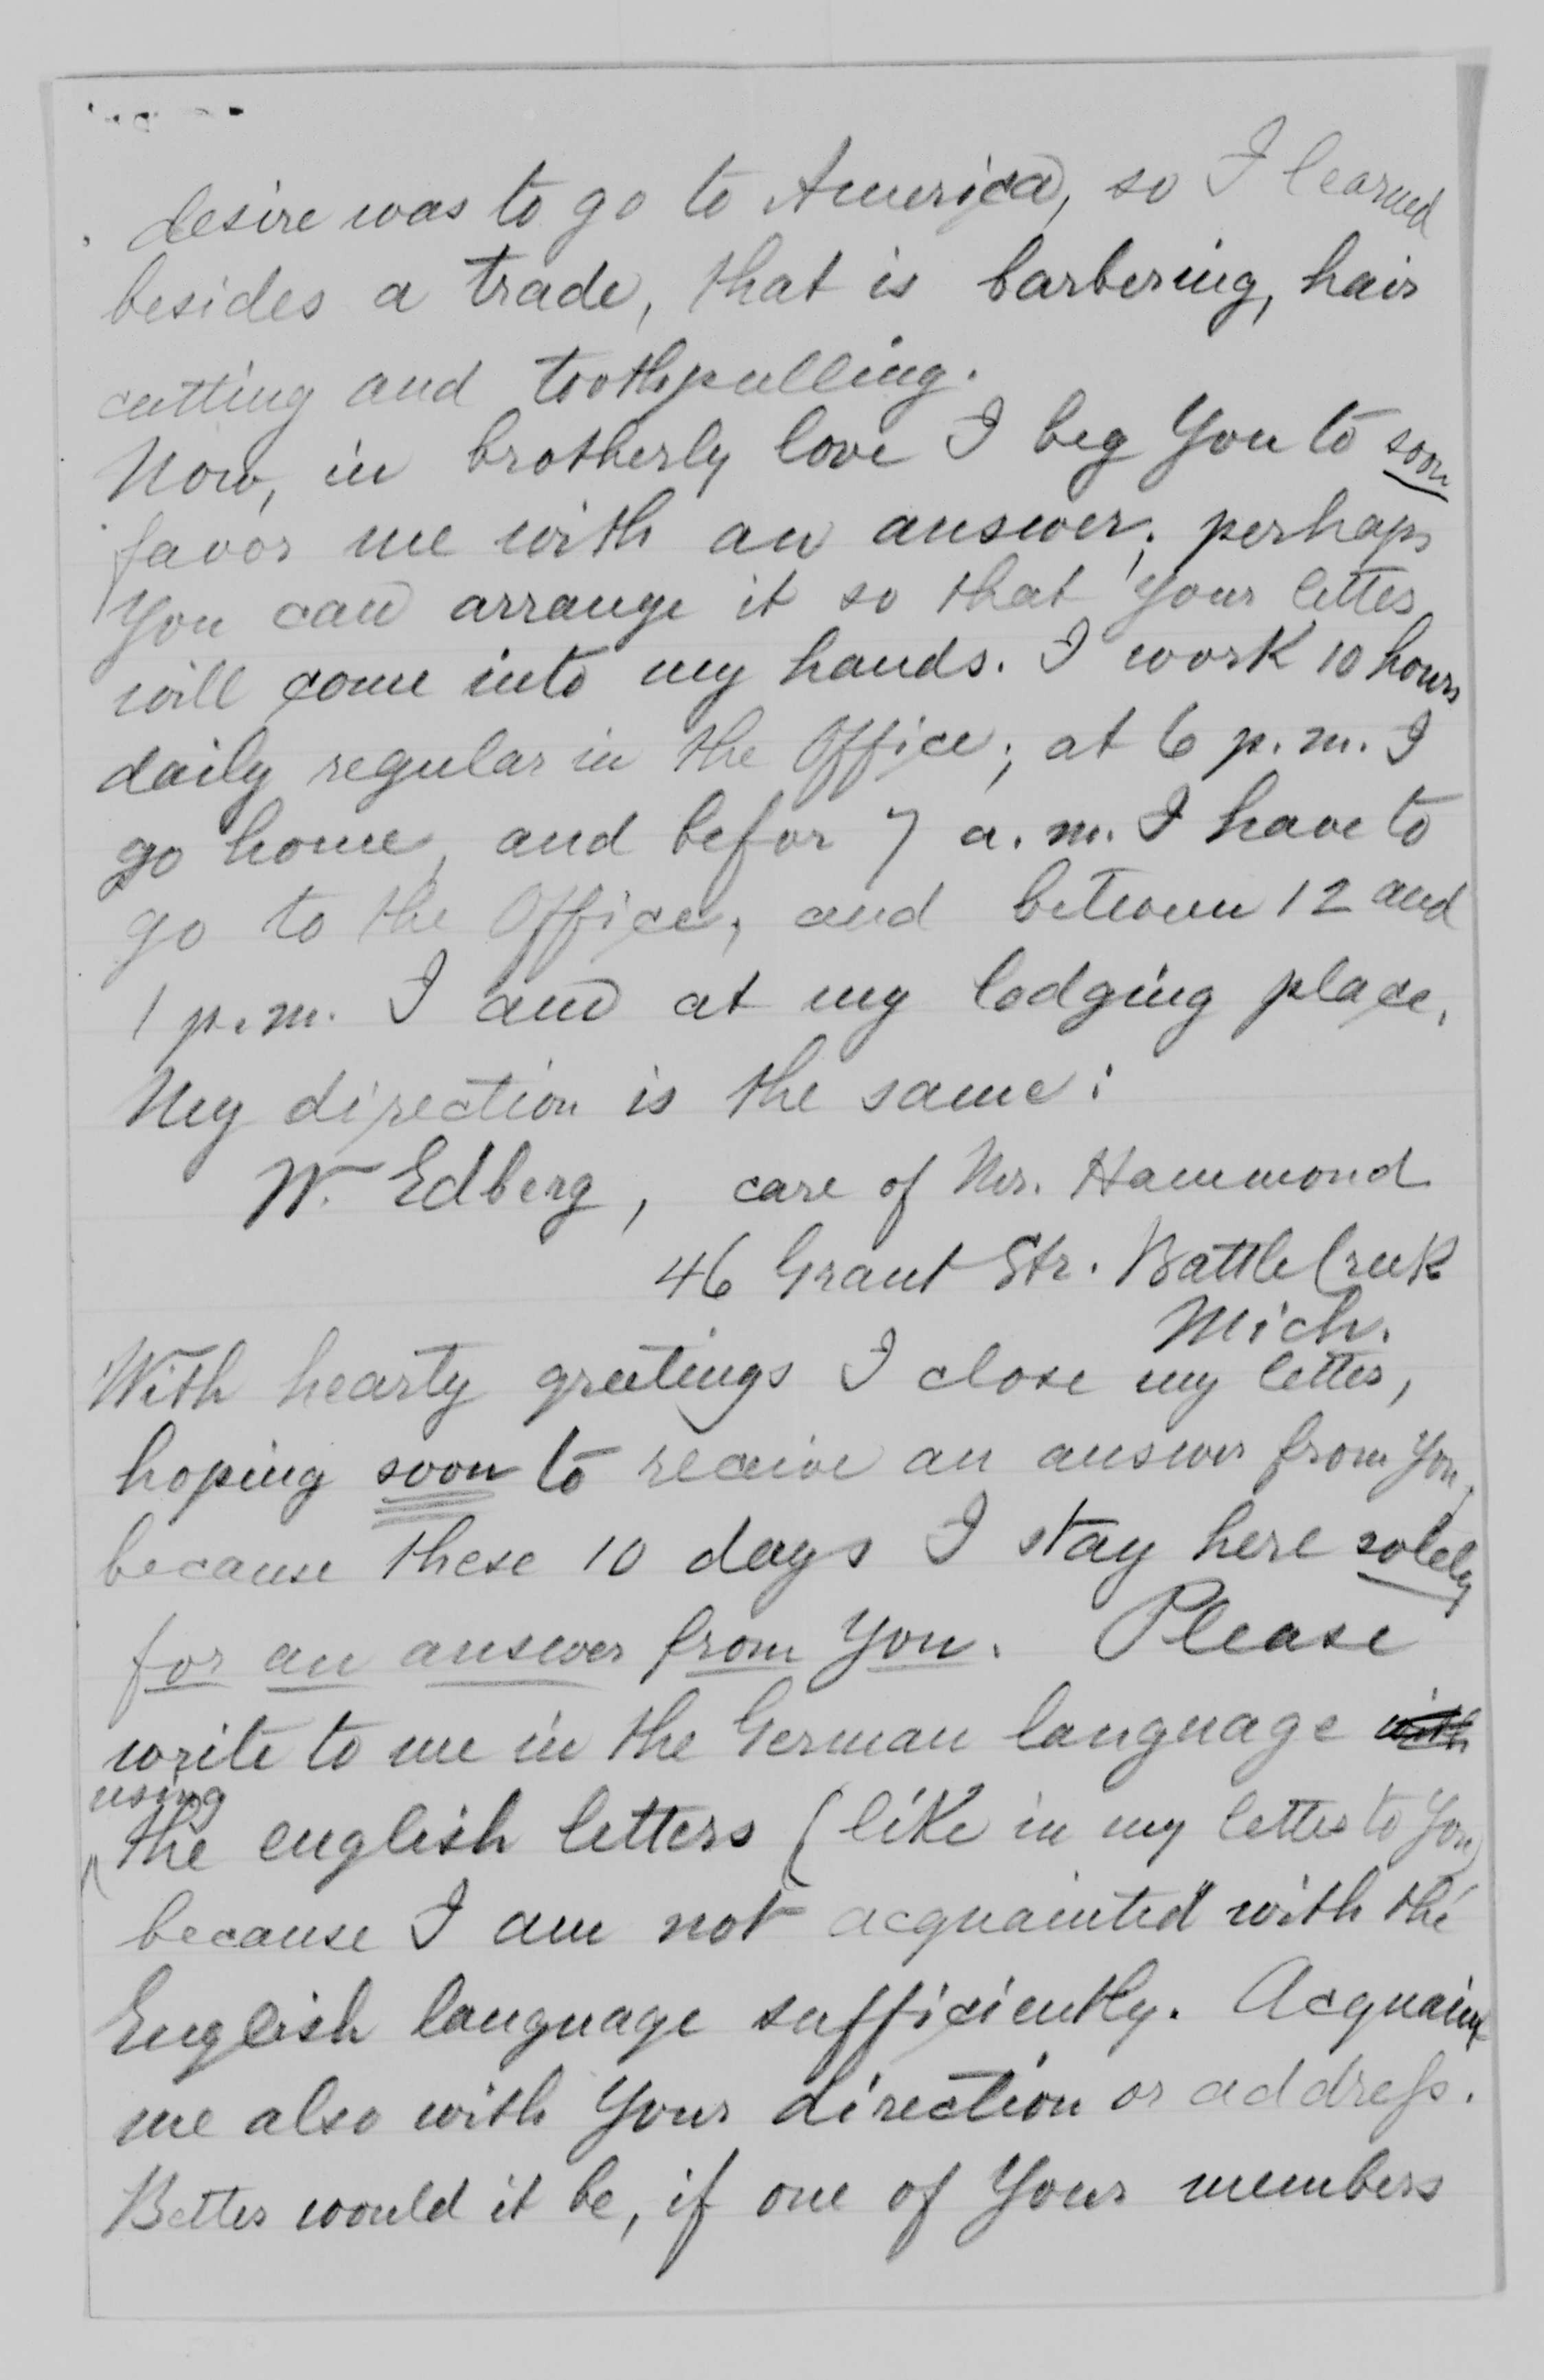 desire was to go to America, so I learned
besides a trade, that is barbering, hair
cutting and toothpulling.
Now, in brotherly love I beg You to soon
favor me with an answer; perhaps
You can arrange it so that Your letter
will come into my hands. I work 10 hours
daily regular in the Office; at 6 p.m. I
go home, and befor 7 a.m. I have to
go to the Office, and between 12 and
1 p.m. I am at my lodging place.
My direction is the same:
W. Edberg, care of Mr. Hammond
46 Grant Str. Battle Creek
Mich.
With hearty greetings I close my letter,
hoping soon to receive an answer from You,
because these 10 days I stay here solely
for an answer from You. Please
write to me in the German language with
using
the english letters (like in my letter to You)
because I am not acquainted with the
English language sufficiently. Acquaint
me also with Your direction or address.
Better would it be, if one of Your members